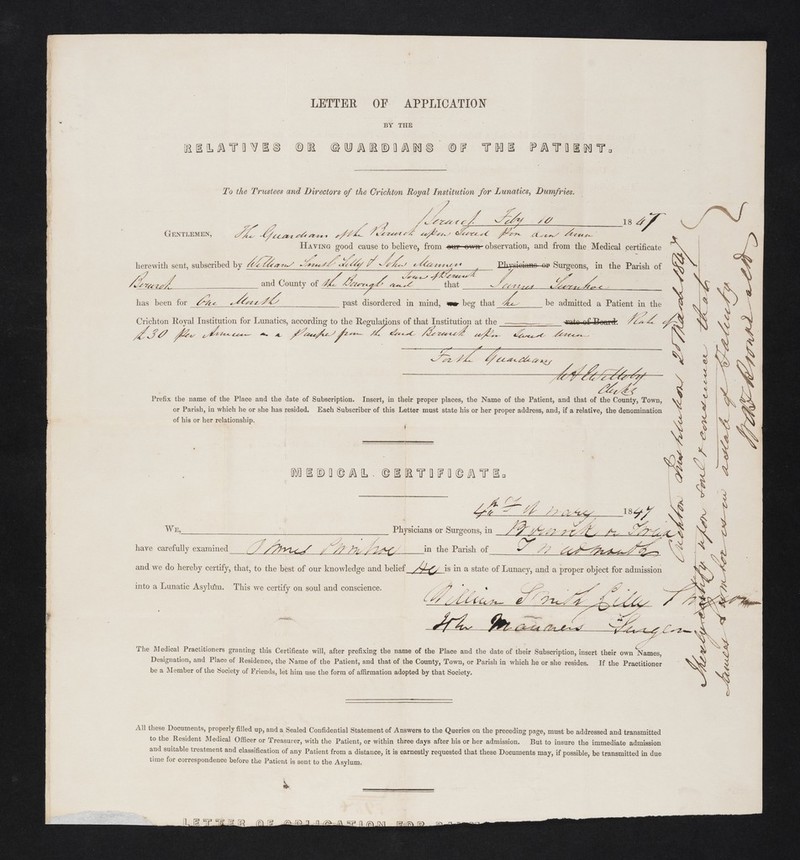 LETTER OF APPLICATION
BY THE
RELATIVES OR GUARDIANS OF THE PATIENT.
To the Trustees and Directors of the Crichton Royal Institution for Lunatics, Dumfries.
Feby 10 1847
GENTLEMEN, The Guardians of the Berwick upon Tweed Poor Law Union
HAVING good cause to believe, from our own observation, and from the Medical certificate
herewith sent, subscribed by William Smith Lilly & John Physicians or Surgeons, in the Parish of
Berwick and County of the Borough and Town of Berwick that James
has been for One Month past disordered in mind, beg that he be admitted a Patient in the
Crichton Royal Institution for Lunatics, according to the Regulations of that Institution at the rate of Board. Rate of
£30 per Annum as a Pauper from the said Berwick upon Tweed Union
For the Guardians
Clerk
Prefix the name of the Place and the date of Subscription. Insert, in their proper places, the Name of the Patient, and that of the County, Town,
or Parish, in which he or she has resided. Each Subscriber of this Letter must state his or her proper address, and, if a relative, the denomination
of his or her relationship.
MEDICAL CERTIFICATE.
1847
WE, Physicians or Surgeons, in Berwick on Tweed
have carefully examined James in the Parish of Tweedmouth
and we do hereby certify, that, to the best of our knowledge and belief He is in a state of Lunacy, and a proper object for admission
into a Lunatic Asylum. This we certify on soul and conscience.
William Smith Lilly
John Surgeon
The Medical Practitioners granting this Certificate will, after prefixing the name of the Place and the date of their Subscription, insert their own Names,
Designation, and Place of Residence, the Name of the Patient, and that of the County, Town, or Parish in which he or she resides. If the Practitioner
be a Member of the Society of Friends, let him use the form of affirmation adopted by that Society.
All these Documents, properly filled up, and a Sealed Confidential Statement of Answers to the Queries on the preceding page, must be addressed and transmitted
to the Resident Medical Officer or Treasurer, with the Patient, or within three days after his or her admission. But to insure the immediate admission
and suitable treatment and classification of any Patient from a distance, it is earnestly requested that these Documents may, if possible, be transmitted in due
time for correspondence before the Patient is sent to the Asylum.
LETTER OF APPLICATION FOR
Crichton Institution 2 March 1847
I hereby certify upon soul & conscience that
James is in a state of Fatuity
W A F Browne M D